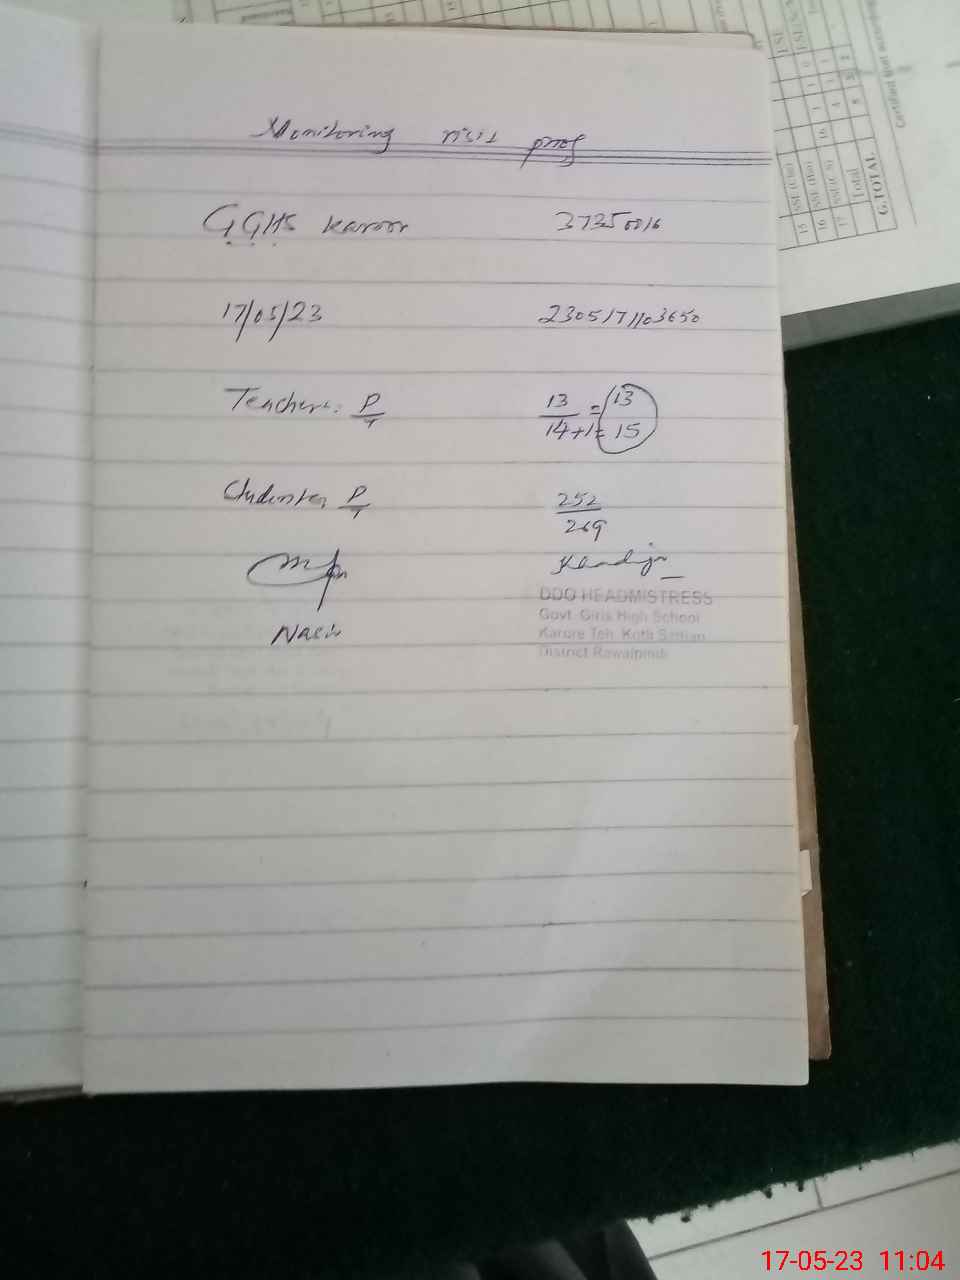 Monitoring visit prof
GGHS Karor 37350016
17/05/23 2305171103650
Teachers: P/T 13/14+1 = 13/15
Students P/T 252/269
Nasir
DDO HEADMISTRESS
Govt. Girls High School
Karore Teh. Kotli Sattian
District Rawalpindi
15 SSE (Chi)
16 SSE (Bio)
17 SSE(CS)
Total
G.TOTAL
17-05-23 11:04